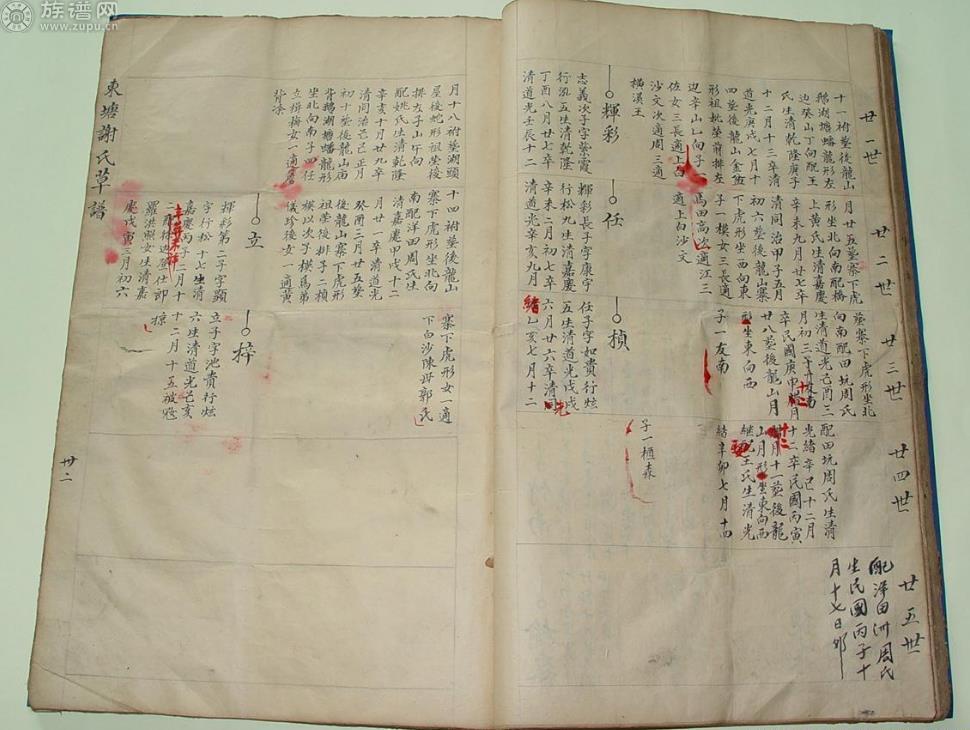 族谱网
www.zupu.cn
廿一世
十一祔塟後龍山
鵝湖塘蟠龍形左
邊癸山丁向配王
氏生清乾隆庚子
十二月十三卒清
道光庚戌七月十
四塟後龍山金盤
形祖妣塋前排左
邊辛山乙向子一
佐女三長適上白
沙文次適周三適
橫溪王
輝彩
志義次子字紫霞
行弘五生清乾隆
丁酉八月廿七卒
清道光壬辰十二
月十八祔塟湖頭
屋後蛇形祖塋後
排左子山午向
配姚氏生清乾隆
辛亥十月廿九卒
清同治己巳正月
初十塟後龍山庙
背鵝湖塘蟠龍形
坐北向南子四任
立楫梅女一適
背凃
廿二世
月廿五塟寨下虎
形坐北向南配橋
上黄氏生清嘉慶
辛未九月廿七卒
清同治甲子五月
初六塟後龍山寨
下虎形坐西向東
子一模女三長適
馬田高次適江三
適上白沙文
任
輝彩長子字康宇
行松九生清嘉慶
辛未二月初七卒
清道光辛亥九月
十四祔塟後龍山
寨下虎形坐北向
南配洋田周氏生
清嘉慶甲戌十二
月廿一卒清道光
癸酉三月廿五塟
後龍山寨下虎形
祖塋後排子二楨
模以次子模爲弟
儀珍後女一適黄
立
輝彩第二子字顯
字行松十七生清
嘉慶丙子二月十
二
羅洪照女生清嘉
慶戊寅三月初六
廿三世
塟寨下虎形坐北
向南配田坑周氏
生清道光己酉三
月初三子一友南
卒民國庚申十二月
廿八塟後龍山月
形坐東向西
子一友南
楨
任子字如貴行炫
五生清道光戊戌
六月廿六卒清光
緒乙亥七月十二
寨下虎形女一適
下白沙陳毋郭氏
梓
立子字池貴行炫
六生清道光己亥
十二月十五被寇
掠
廿四世
配田坑周氏生清
光緒辛巳十二月
十二卒民國丙寅
十二月十一塟後龍
山月形坐東向西
繼王氏生清光
緒辛卯七月十四
子一櫃森
廿五世
配洋田洲周氏
生民國丙子十
月十七日卯
東塘謝氏草譜
卅二